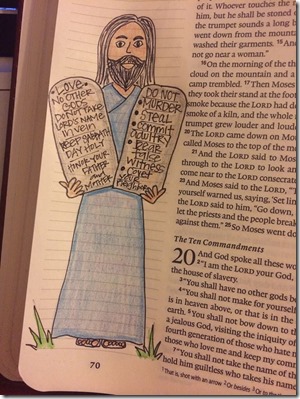 • LOVE
NO OTHER
GODS
• DO NOT TAKE
LORD'S NAME
IN VEIN
• KEEP SABBATH
DAY HOLY
• HONOR YOUR
FATHER
AND
MOTHER
DO NOT
• MURDER
• STEAL
• COMMIT
ADULTERY
• BEAR
FALSE
WITNESS
70
of it. Whoever touches a
him, but he shall be stoned
the trumpet sounds a long
went down from the mount
washed their garments.
not go near a woman."
16 On the morning of the th
cloud on the mountain and a
camp trembled. 17 Then Moses
they took their stand at the foot
smoke because the LORD had d
smoke of a kiln, and the whole
trumpet grew louder and loud
20 The LORD came down on Mo
called Moses to the top of the mo
21 And the LORD said to Mos
through to the LORD to look an
come near to the LORD consecrat
23 And Moses said to the LORD, "T
yourself warned us, saying, 'Set lim
the LORD said to him, "Go down,
let the priests and the people break
against them." 25 So Moses went do
The Ten Commandments
20 And God spoke all these wo
2 "I am the LORD your God,
the house of slavery.
3 "You shall have no other gods be
4 "You shall not make for yourself
is in heaven above, or that is in the
earth. 5 You shall not bow down to t
a jealous God, visiting the iniquity of
fourth generation of those who hate
those who love me and keep my comm
7 "You shall not take the name of
hold him guiltless who takes his name
1 That is, shot with an arrow 2 Or besides 3 Or to th